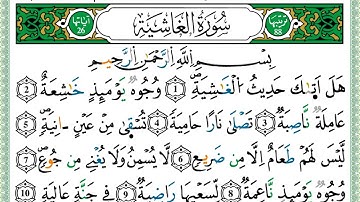 ترتيبها 88 سُورَةُ الْغَاشِيَةِ آياتها 26
بِسْمِ اللَّهِ الرَّحْمَٰنِ الرَّحِيمِ
هَلْ أَتَىٰكَ حَدِيثُ الْغَٰشِيَةِ 1 وُجُوهٌ يَوْمَئِذٍ خَٰشِعَةٌ 2
عَامِلَةٌ نَّاصِبَةٌ 3 تَصْلَىٰ نَارًا حَامِيَةً 4 تُسْقَىٰ مِنْ عَيْنٍ ءَانِيَةٍ 5
لَّيْسَ لَهُمْ طَعَامٌ إِلَّا مِن ضَرِيعٍ 6 لَّا يُسْمِنُ وَلَا يُغْنِى مِن جُوعٍ 7
وُجُوهٌ يَوْمَئِذٍ نَّاعِمَةٌ 8 لِّسَعْيِهَا رَاضِيَةٌ 9 فِى جَنَّةٍ عَالِيَةٍ 10